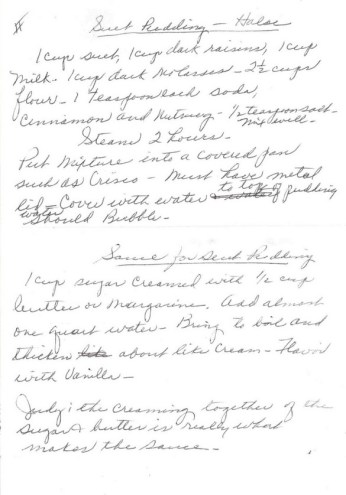 Suet Pudding - Halse
1 cup suet, 1 cup dark raisins, 1 cup
milk. 1 cup dark molasses - 2 1/2 cups
flour - 1 teaspoon each soda,
cinnamon and nutmeg - 1/2 teaspoon salt -
mix well -
Steam 2 hours -
Put mixture into a covered pan
such as Crisco - must have metal
lid - Cover with water to top of pudding
water should bubble -
Sauce for Suet Pudding
1 cup sugar creamed with 1/2 cup
butter or margarine. Add almost
one quart water - Bring to boil and
thicken about like cream - Flavor
with vanilla -
Judy: the creaming together of the
sugar & butter is really what
makes the sauce -